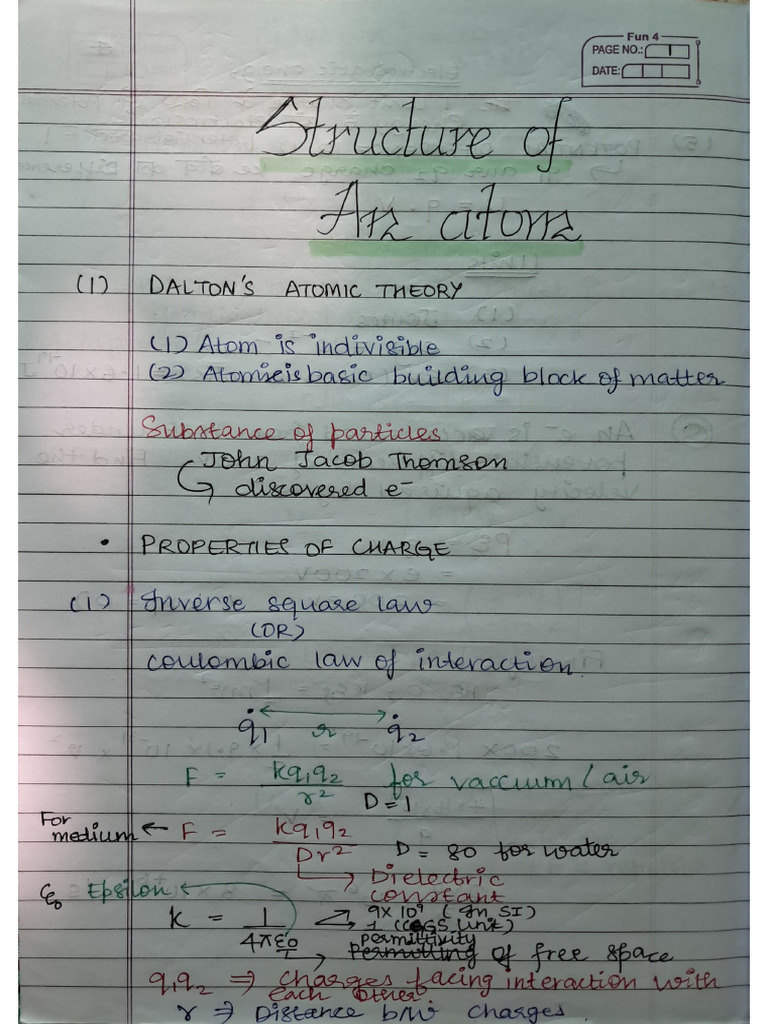 Fun 4
PAGE NO.: 1
DATE:
Structure of
An atom
(1) DALTON'S ATOMIC THEORY
(1) Atom is indivisible
(2) Atom is basic building block of matter
Substance of particles
John Jacob Thomson
discovered e⁻
• PROPERTIES OF CHARGE
(1) Inverse square law
(OR)
coulombic law of interaction.
q₁ r q₂
F = kq₁q₂/r² for vaccium / air
D = 1
For medium ← F = kq₁q₂/Dr² D = 80 for water
Dielectric
constant
ε₀ Epsilon
K = 1/4πε₀ 9×10⁹ (In SI)
1 (CGS Unit)
permittivity
of free space
q₁q₂ ⇒ charges facing interaction with
each other
r ⇒ Distance b/w charges.